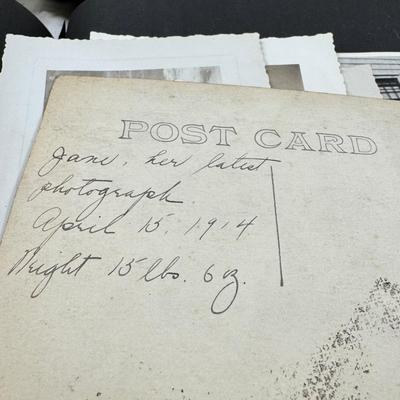 POST CARD
Jane, her latest
photograph.
April 15, 1914
Weight 15 lbs. 6 oz.